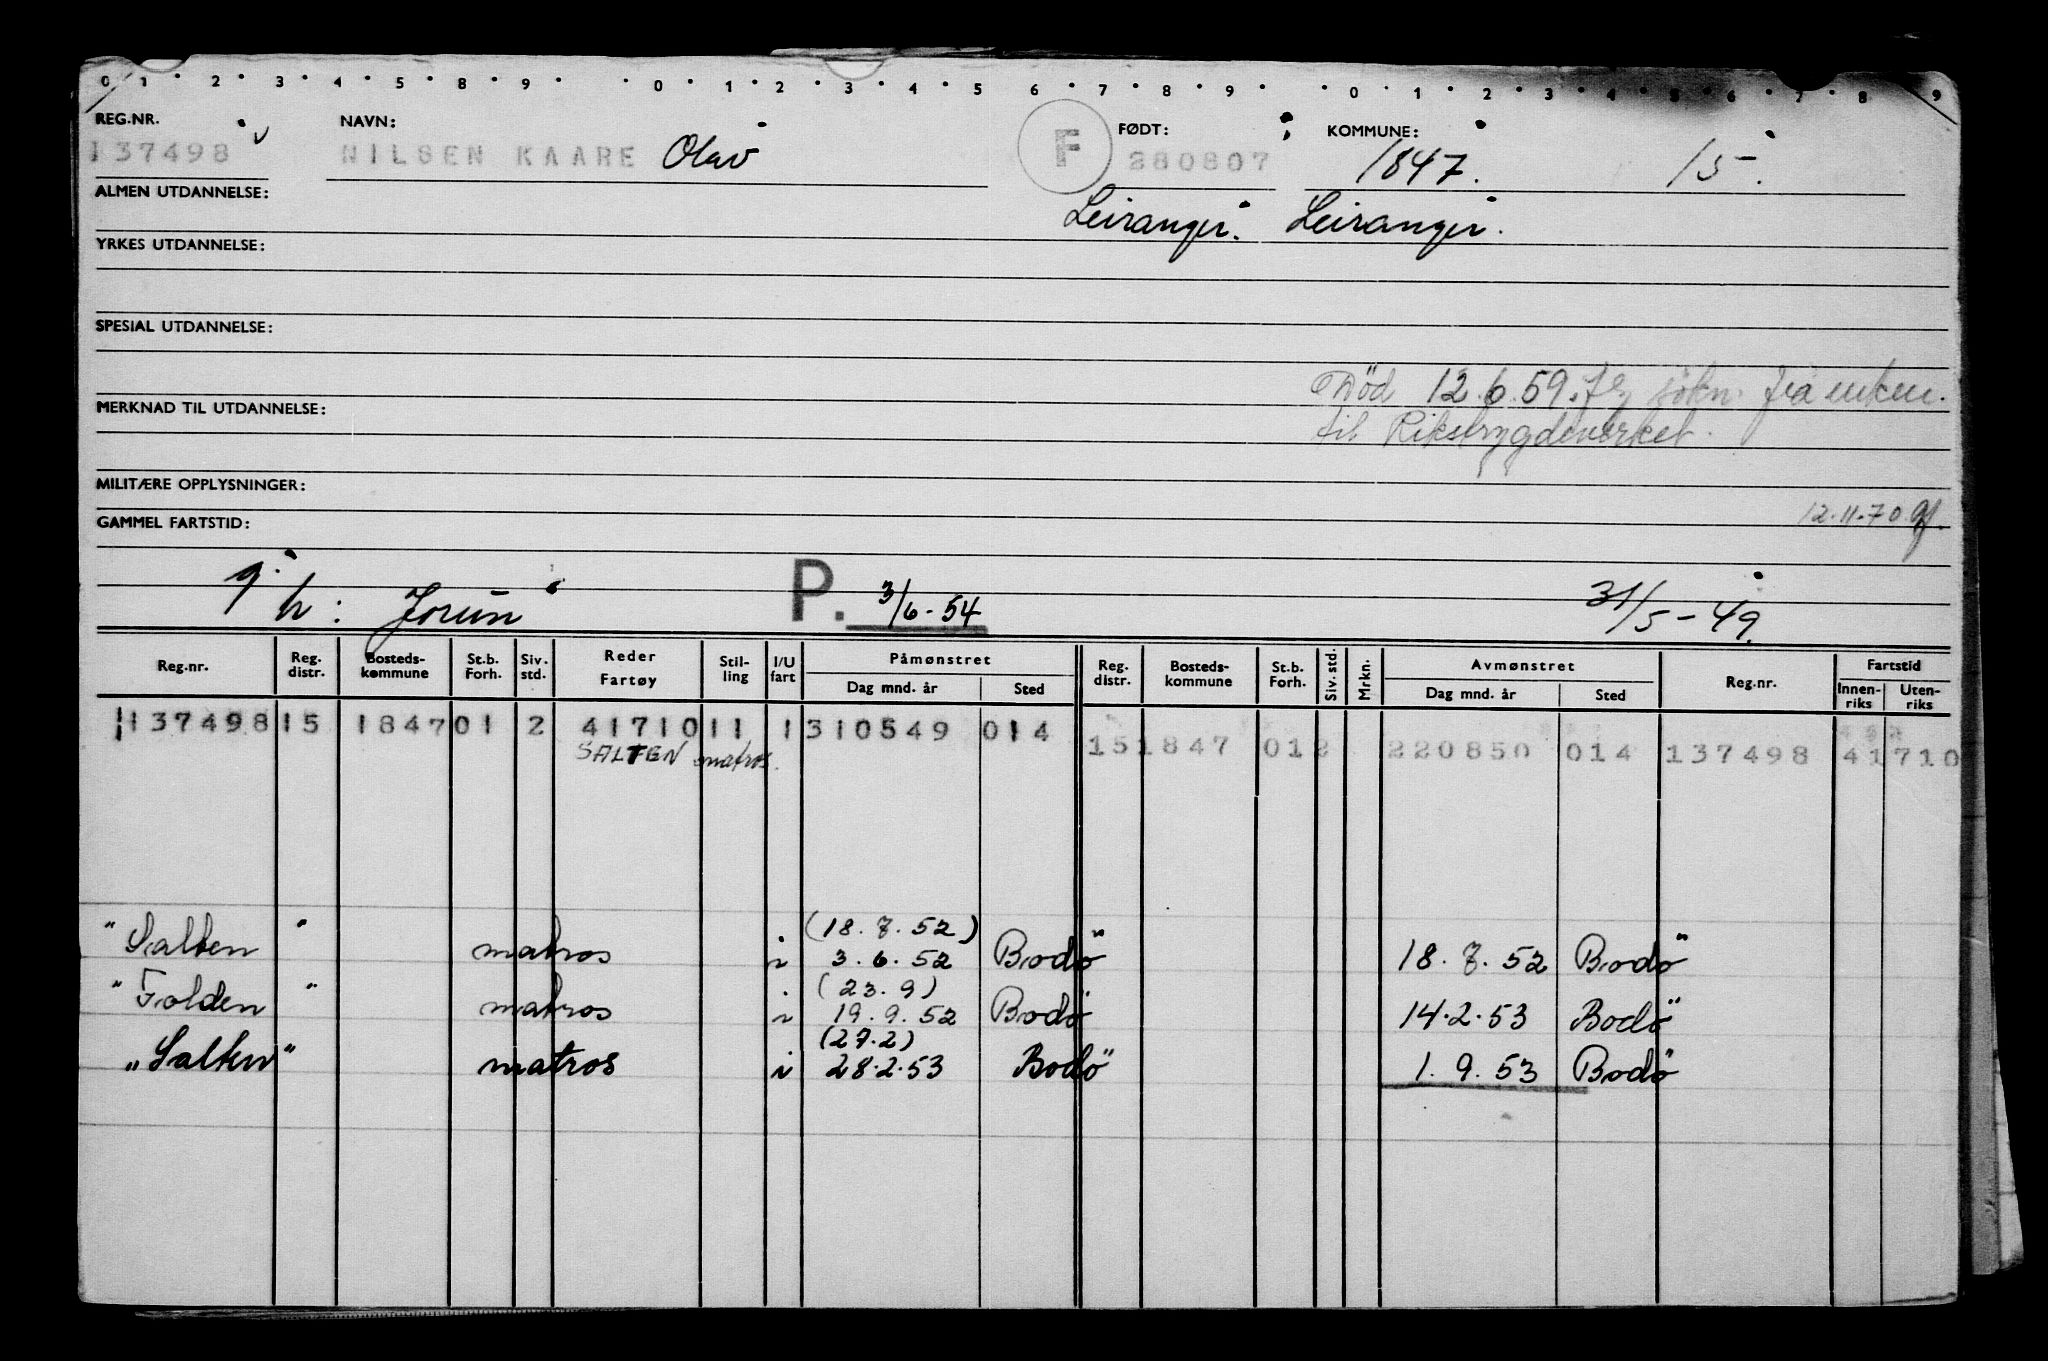 0 1 2 3 4 5 8 9 0 1 2 3 4 5 6 7 8 9 0 1 2 3 4 5 6 7 8 9
REG.NR. NAVN: FØDT: KOMMUNE:
137498 NILSEN KAARE Olav F 280807 1847. 15.
ALMEN UTDANNELSE: Leiranger. Leiranger.
YRKES UTDANNELSE:
SPESIAL UTDANNELSE:
Död 12.6.59. søkn. fra enken.
MERKNAD TIL UTDANNELSE:
til Rikstrygdeverket.
MILITÆRE OPPLYSNINGER:
12.11.70
GAMMEL FARTSTID:
g. h: Jorun P. 3/6-54 31/5-49.
Reg.nr. Reg. distr. Bosteds-kommune St.b. Forh. Siv. std. Reder Fartøy Stil-ling I/U fart Påmønstret Dag mnd. år Sted Reg. distr. Bosteds-kommune St.b. Forh. Siv. std. Mrkn. Avmønstret Dag mnd. år Sted Reg.nr. Fartstid Innen-riks Uten-riks
137498 15 1847 01 2 41710 11 1 310549 014
SALTEN matros. 15 1847 01 2 220850 014 137498 41710
(18.7.52)
"Salten" matros i 3.6.52 Bodö 18.7.52 Bodö
(23.9)
"Folden" matros i 19.9.52 Bodö 14.2.53 Bodö
(27.2)
"Salten" matros i 28.2.53 Bodö 1.9.53 Bodö